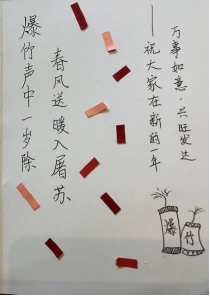 爆竹声中一岁除
春风送暖入屠苏
——祝大家在新的一年
万事如意，兴旺发达
爆
竹